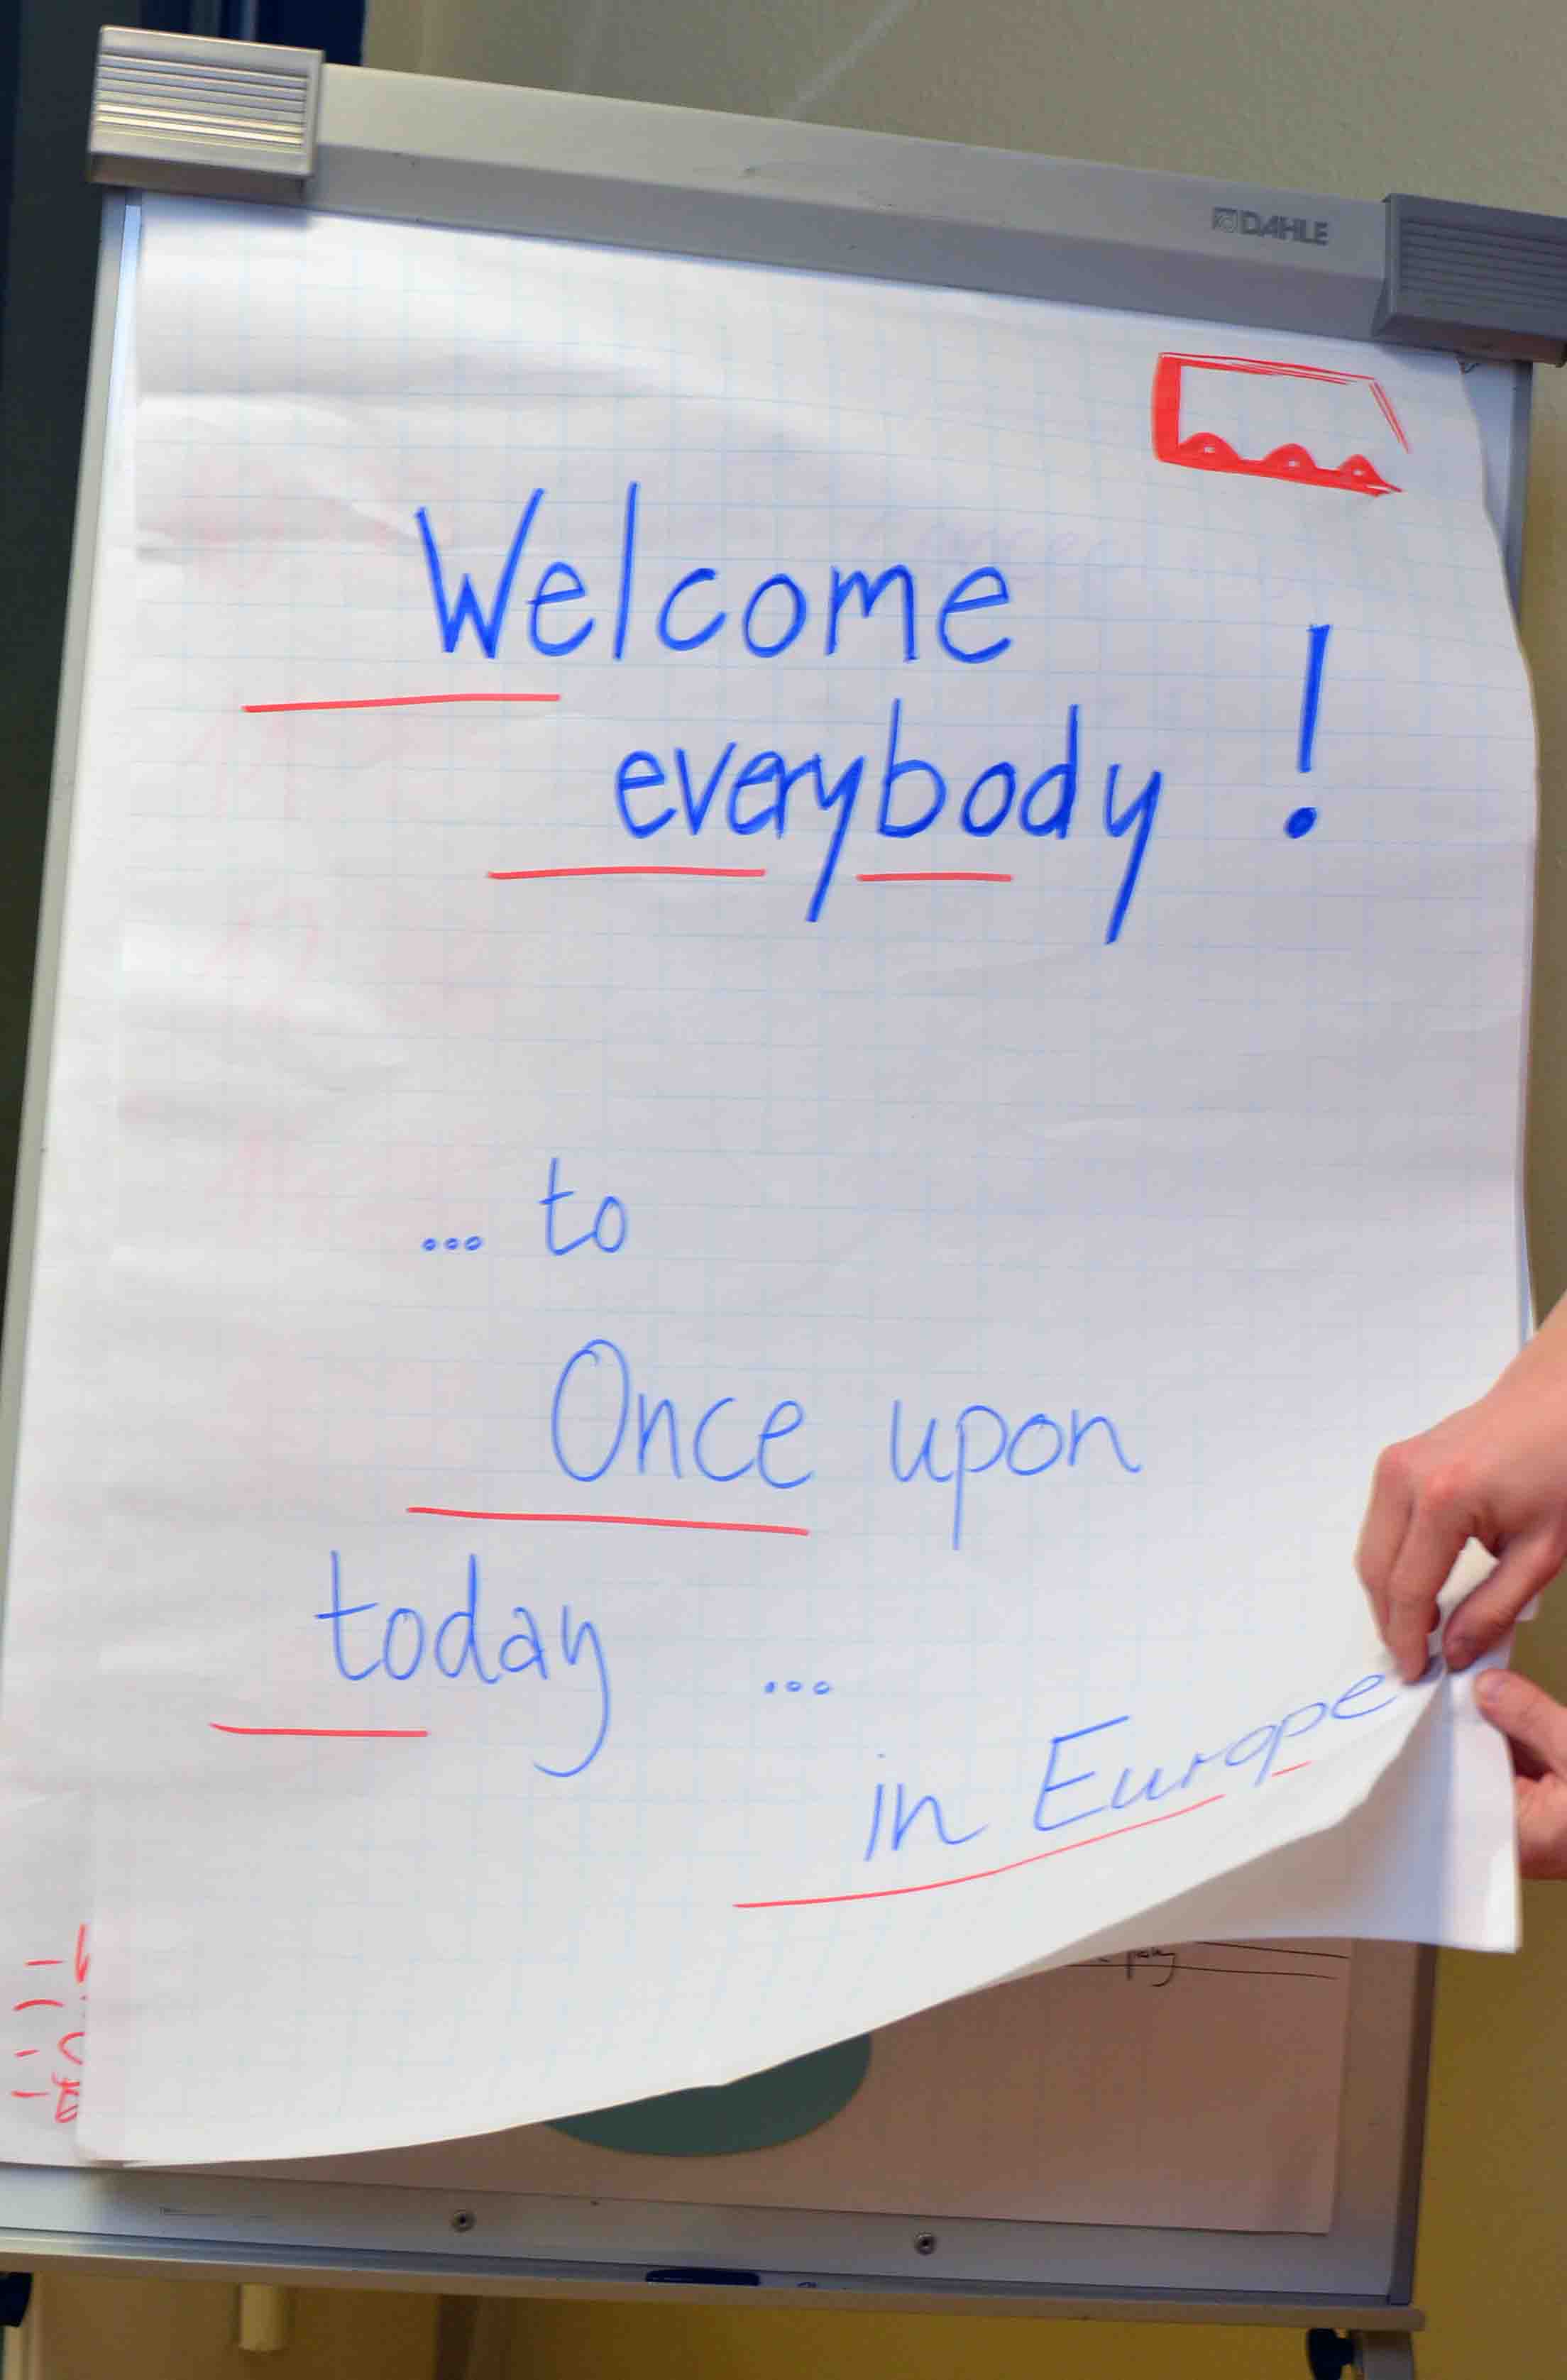 DAHLE
Welcome
everybody !
... to
Once upon
today ...
in Europe